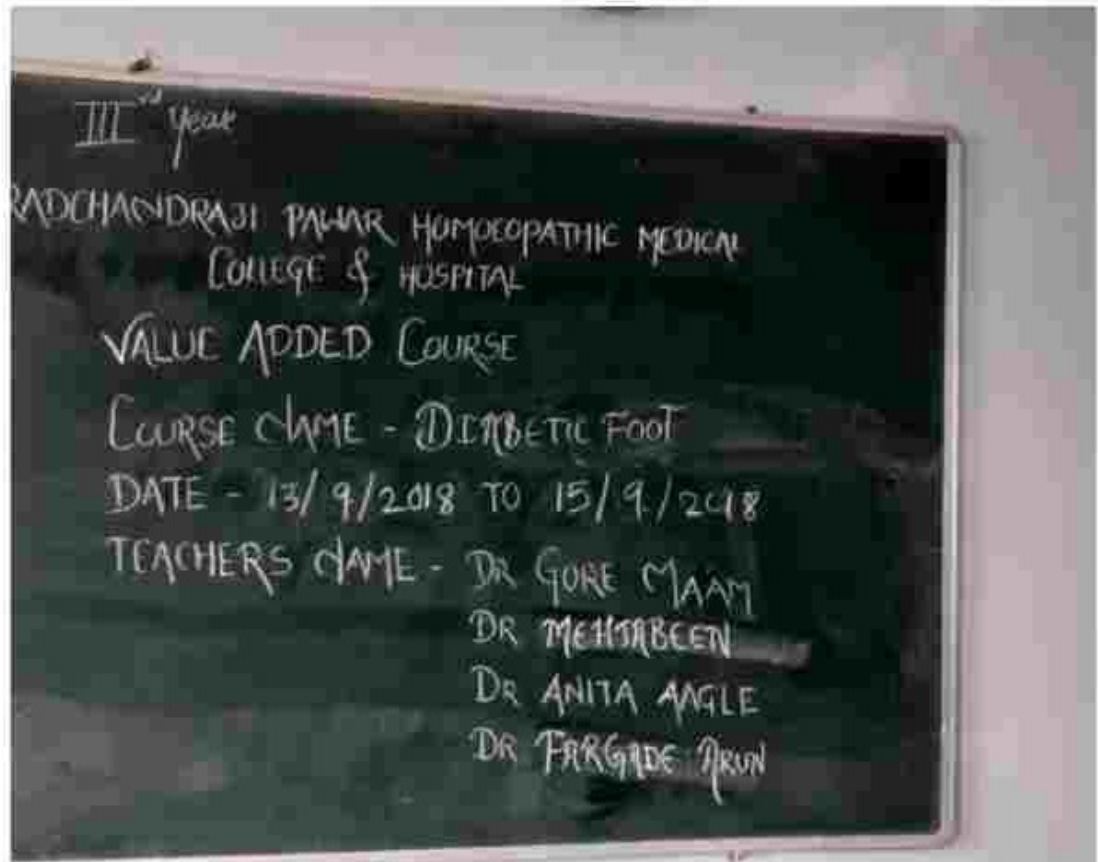 IIIrd Year
RADCHANDRAJI PAWAR HOMOEOPATHIC MEDICAL
COLLEGE & HOSPITAL
VALUE ADDED COURSE
COURSE NAME - DIABETIC FOOT
DATE - 13/9/2018 TO 15/9/2018
TEACHERS NAME - DR GORE MAAM
DR MEHJABEEN
DR ANITA ANGLE
DR FARGADE ARUN